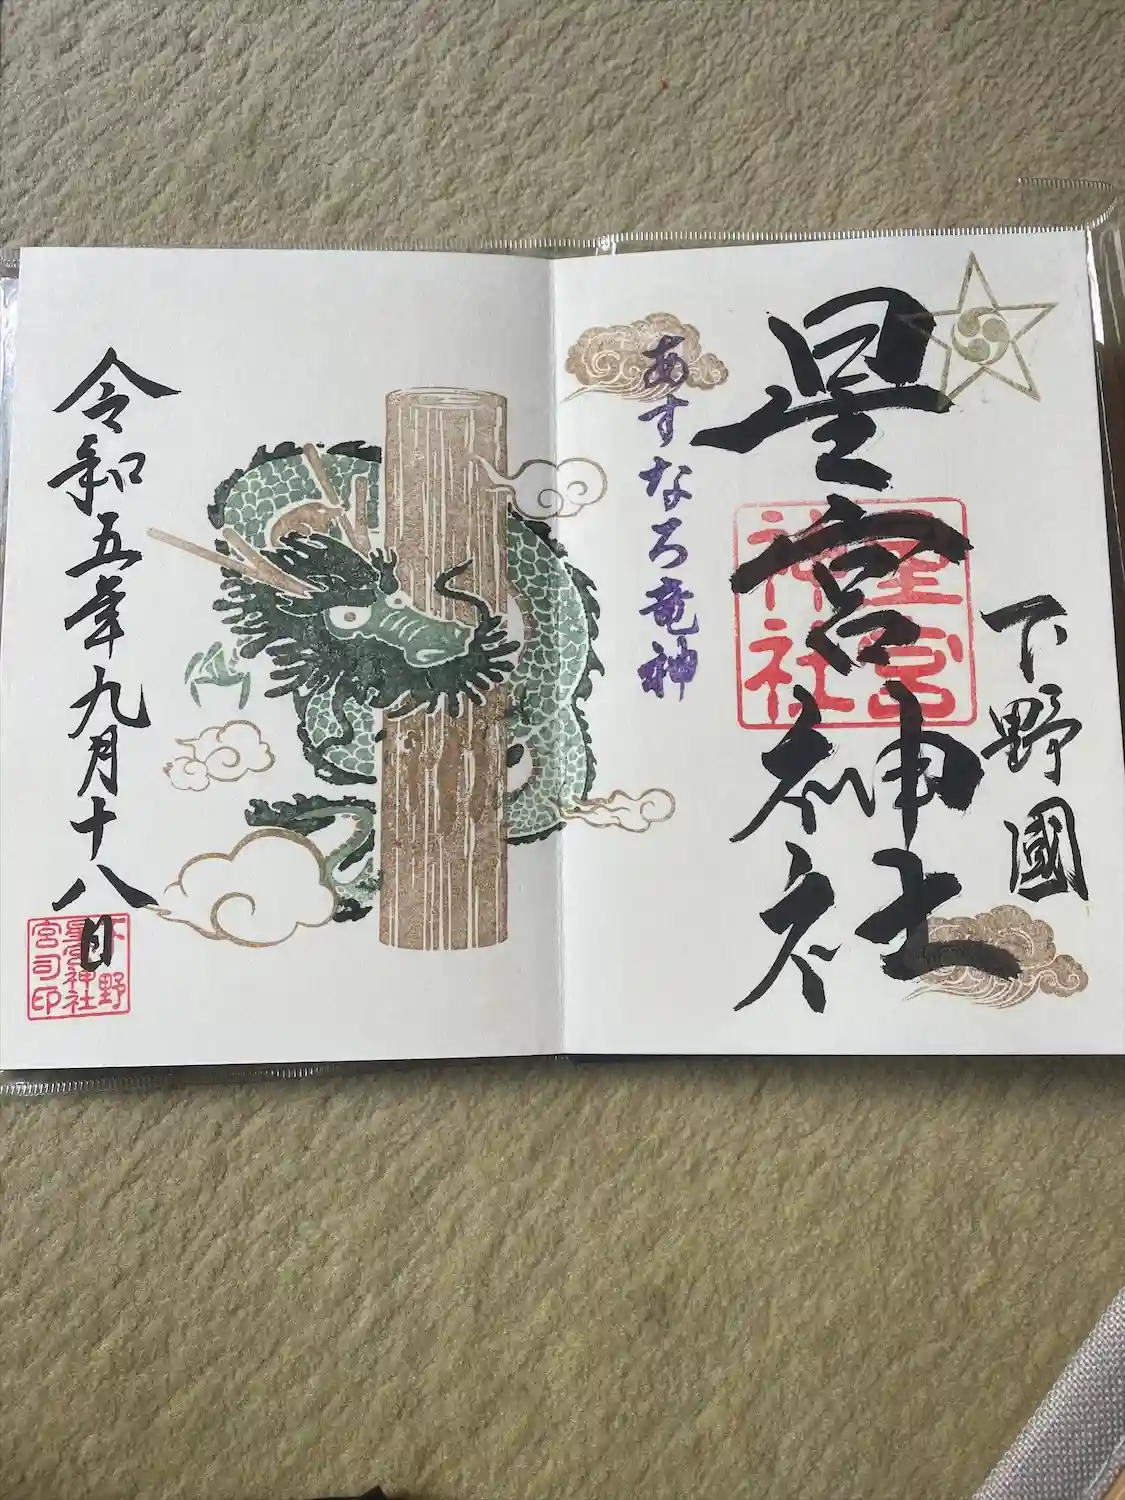 下野國
星宮神社
星宮
神社
あすなろ竜神
令和五年九月十八日
下野
星宮神社
宮司印